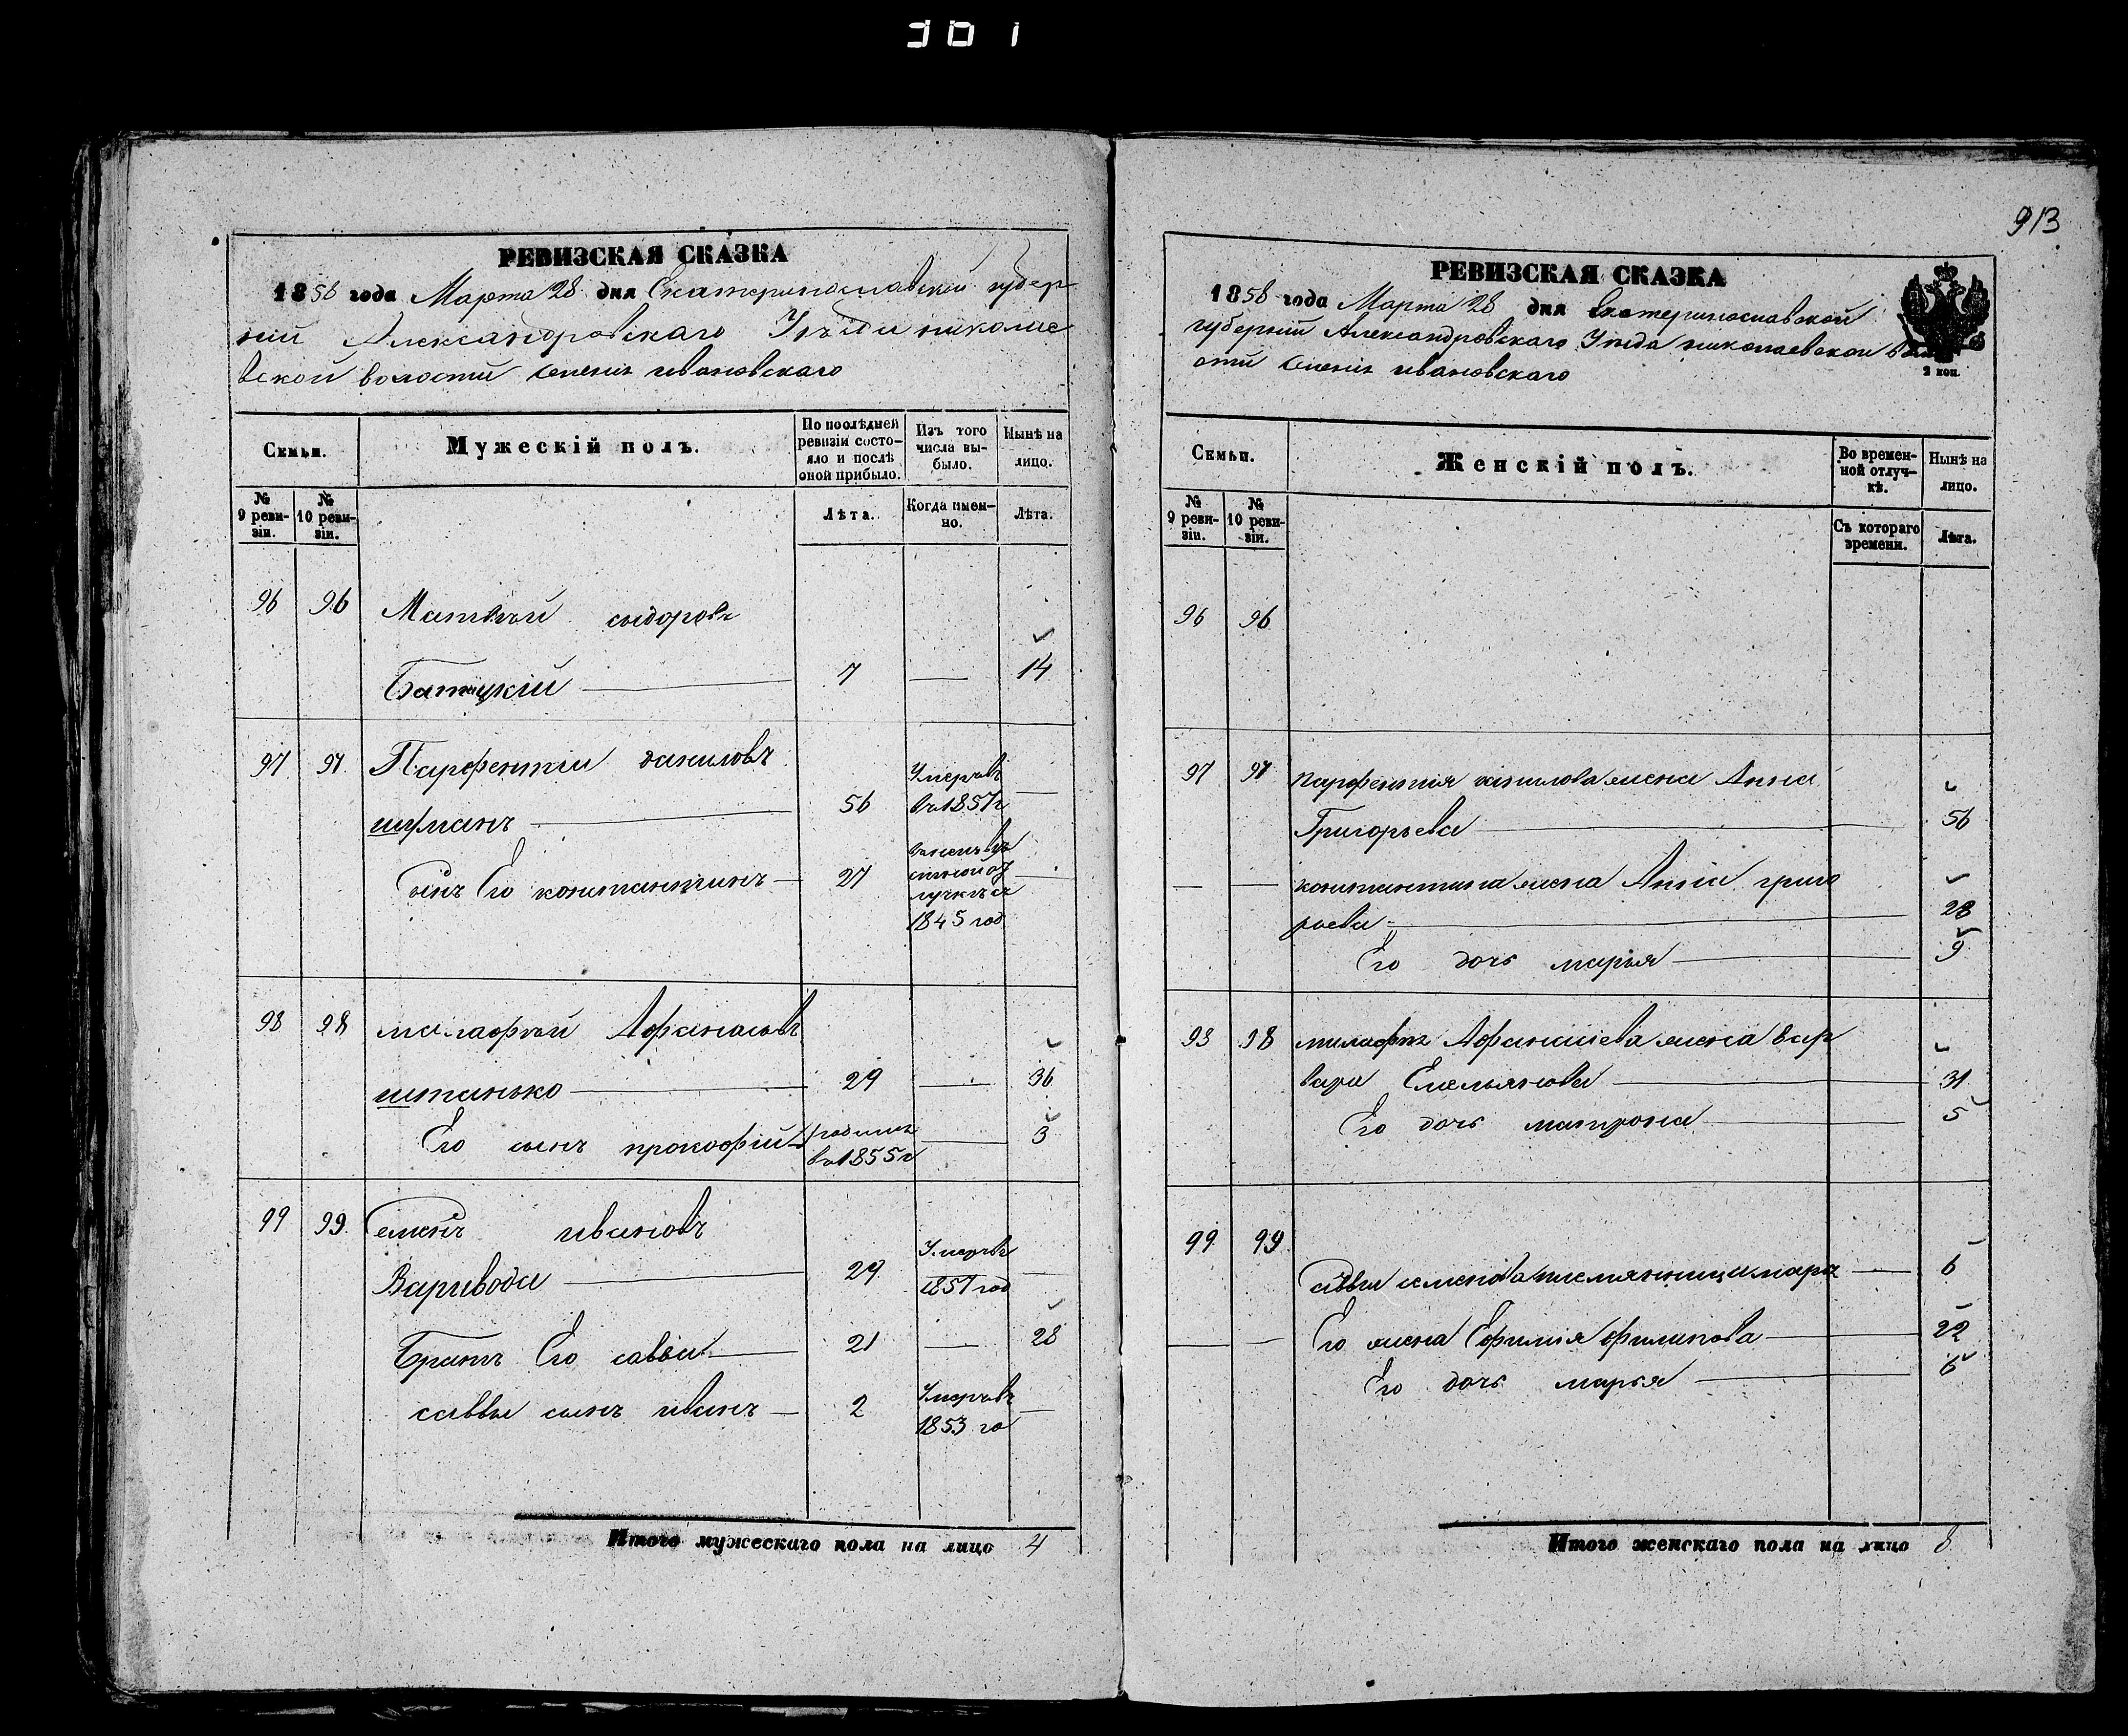 301
913
РЕВИЗСКАЯ СКАЗКА
1858 года Марта 28 дня Екатеринославской губер
нии Александровскаго Уезда николае
вской волости Селенія ивановскаго
Семьи.
Мужескій полъ.
По послѣдней ревизіи состо-
яло и послѣ оной прибыло.
Изъ того числа вы-
было.
Нынѣ на лицо.
№ 9 реви-
зіи.
№ 10 реви-
зіи.
Лѣта.
Когда имен-
но.
Лѣта.
96 96 Матвѣй сидоровъ
7 — 14
97 97 Парфентий даниловъ
шуманъ — 56 Умеръ въ 1857 г —
Сынъ Его константинъ — 27
1845 год
98 98 малафѣй Афанасовъ
штанько — 29 — 36
Его сынъ прокофій — родился въ 1855 г — 3
99 99 Семенъ ивановъ
Варивода — 29 Умеръ 1857 год —
Братъ Его савва — 21 — 28
саввы сынъ иванъ — 2 Умеръ 1853 го —
Итого мужескаго пола на лицо 4
РЕВИЗСКАЯ СКАЗКА
1858 года Марта 28 дня Екатеринославской
губерніи Александровскаго Уезда николаевской вол
ости Селенія ивановскаго
2 коп.
Семьи.
Женскій полъ.
Во времен-
ной отлуч-
кѣ.
Нынѣ на лицо.
№ 9 реви-
зіи.
№ 10 реви-
зіи.
Съ котораго времени.
Лѣта.
96 96
97 97 парфентия данилова жена Анна
Григорьева — 56
— — константина жена Анна григо
рьева — 28
Его дочь марья — 9
98 98 малафея Афанасиева жена вар
вара Емельянова — 31
Его дочь матрона — 5
99 99
саввы семенова племянница — 6
— — Его жена Ефимия филипова — 22
Его дочь марья — 6
Итого женскаго пола на лицо 8